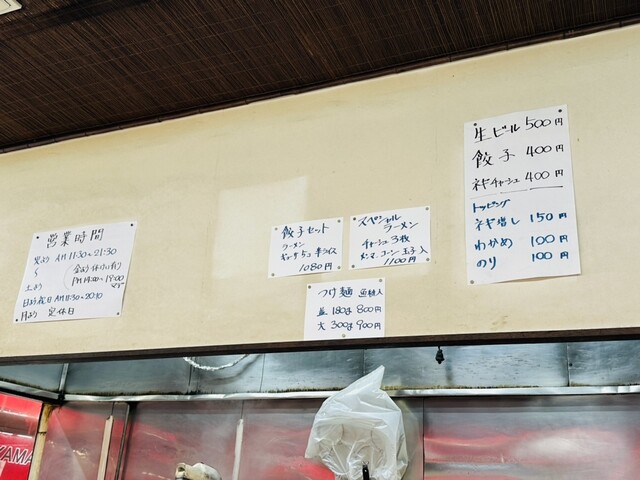 営業時間
火よう AM 11:30~21:30
~
土よう
日よう祝日 AM 11:30~20:10
月よう 定休日
餃子セット
ラーメン
ギョーザ5コ 半ライス
1080円
スペシャル
ラーメン
チャーシュー3枚
メンマ、コーン、玉子入
1100円
つけ麺
並 180g 800円
大 300g 900円
生ビール 500円
餃子 400円
ネギチャーシュー 400円
トッピング
ネギ増し 150円
わかめ 100円
のり 100円
YAMA